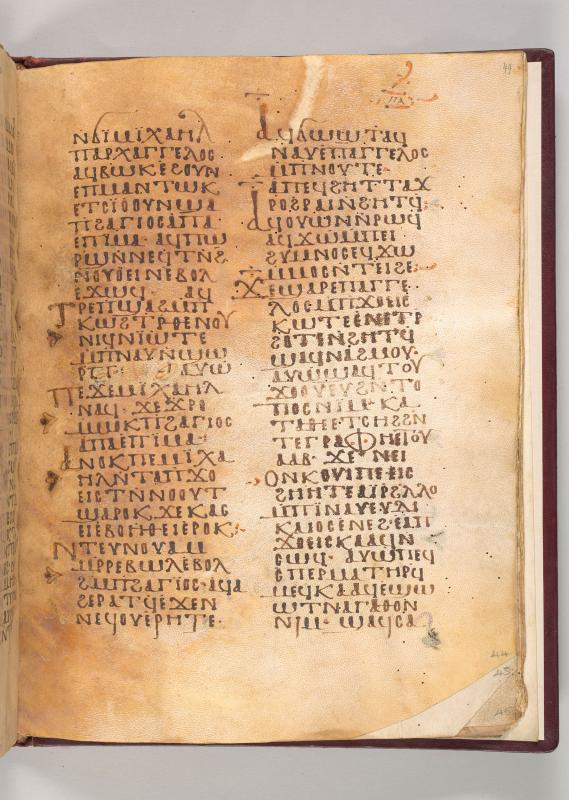 ⲡⲁ
44
ⲛϭⲓⲙⲓⲭⲁⲏⲗ
ⲡⲁⲣⲭⲁⲅⲅⲉⲗⲟⲥ
ⲁϥⲃⲱⲕⲉϩⲟⲩⲛ
ⲉⲡⲙⲁⲛⲧⲱⲕ
ⲉⲧϩⲓϩⲟⲩⲛϣⲁ
ⲡϩⲁⲅⲓⲟⲥⲁⲡⲁ
ⲉⲡⲓⲙⲁ· ⲁϥⲡⲱ
ⲣϣⲛⲛⲉϥⲧⲛϩ
ⲛⲟⲩⲟⲉⲓⲛⲉⲃⲟⲗ
ⲉϫⲱϥ· ⲁϥ
ⲧⲣⲉⲡⲙⲁϩⲙⲡ
ⲕⲱϩⲧⲣⲑⲉⲛⲟⲩ
ⲛⲓϥⲛⲓⲱⲧⲉ
ⲙⲡⲛⲁⲩⲛϣⲱ
ⲣⲡ· ⲁⲩⲱ
ⲡⲉϫⲉⲙⲓⲭⲁⲏⲗ
ⲛⲁϥ· ϫⲉϫⲣⲟ
ⲙⲙⲟⲕⲡϩⲁⲅⲓⲟⲥ
ⲁⲡⲁⲉⲡⲓⲙⲁ·
ⲁⲛⲟⲕⲡⲉⲙⲓⲭⲁ
ⲏⲗⲛⲧⲁⲡϫⲟ
ⲉⲓⲥⲧⲛⲛⲟⲟⲩⲧ
ϣⲁⲣⲟⲕ· ϫⲉⲕⲁⲥ
ⲉⲓⲉⲃⲟⲏⲑⲉⲓⲉⲣⲟⲕ·
ⲛⲧⲉⲩⲛⲟⲩⲁⲙ
ⲙⲣⲣⲉⲃⲱⲗⲉⲃⲟⲗ
ϩⲙⲡϩⲁⲅⲓⲟⲥ· ⲁϥⲁ
ϩⲉⲣⲁⲧϥⲉϫⲉⲛ
ⲛⲉϥⲟⲩⲉⲣⲏⲧⲉ·
ⲁϥϭⲱϣⲧⲁϥ
ⲛⲁⲩⲉⲡⲁⲅⲅⲉⲗⲟⲥ
ⲙⲡⲛⲟⲩⲧⲉ·
ⲁⲡⲉϥϩⲏⲧⲧⲁϫ
ⲣⲟϩⲣⲁⲓⲛϩⲏⲧϥ·
ⲁϥⲟⲩⲱⲛⲛⲣⲱϥ
ⲁϥϫⲱⲙⲡⲉⲓ
ϩⲩⲙⲛⲟⲥⲉϥϫⲱ
ⲙⲙⲟⲥⲛⲧⲉⲓϩⲉ·
ϫⲉϣⲁⲣⲉⲡⲁⲅⲅⲉ
ⲗⲟⲥⲙⲡϫⲟⲉⲓⲥ
ⲕⲱⲧⲉⲉⲛⲉⲧⲣ
ϩⲟⲧⲉⲛϩⲏⲧϥ
ϣⲁϥⲛⲁϩⲙⲟⲩ·
ⲁⲩⲱϣⲁϥⲧⲟⲩ
ϫⲟⲟⲩⲉⲩϩⲛⲧⲟ
ⲡⲟⲥⲛⲓⲙ· ⲕⲁ
ⲧⲁⲑⲉⲉⲧⲥⲏϩϩⲛ
ⲧⲉⲅⲣⲁⲫⲏ
ⲇⲁⲇ· ϫⲉⲛⲉⲓ
ⲟⲛⲕⲟⲩⲓⲡⲉⲉⲓⲥ
ϩⲏⲏⲧⲉⲁⲓⲣϩⲗⲗⲟ
ⲙⲡⲓⲛⲁⲩⲉⲩⲇⲓ
ⲕⲁⲓⲟⲥⲉⲛⲉϩ· ⲉⲁⲡ
ϫⲟⲉⲓⲥⲕⲁⲁϥⲛ
ⲥⲱϥ· ⲁⲩⲱⲡⲉϥ
ⲥⲡⲉⲣⲙⲁⲧⲏⲣϥ
ⲙⲉϥⲕⲁⲁϥⲉϣⲱ
ⲱⲧⲛⲁⲅⲁⲑⲟⲛ
ⲛⲓⲙ· ϣⲁϥⲥⲁ
44
45